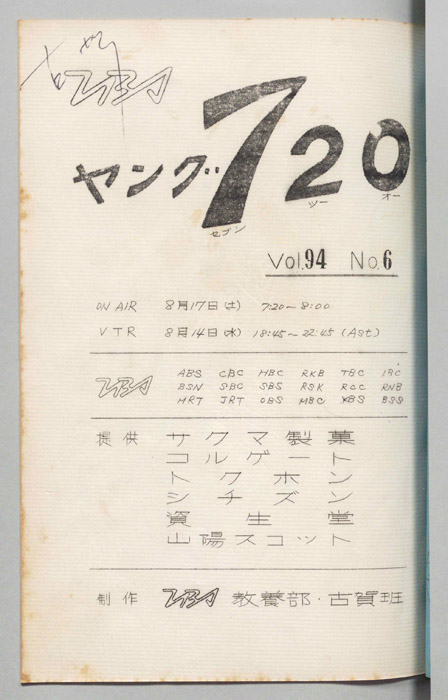 TBS
ヤング720
セブン ツー オー
Vol.94 No.6
ON AIR 8月17日(土) 7:20~8:00
VTR 8月14日(水) 18:45~22:45 (Ast)
TBS ABS CBC HBC RKB TBC IBC
BSN SBC SBS RSK RCC RNB
MRT JRT OBS MBC ABS BSS
提供 サクマ製菓
コルゲート
トクホン
シチズン
資生堂
山陽スコット
制作 TBS 教養部・古賀班